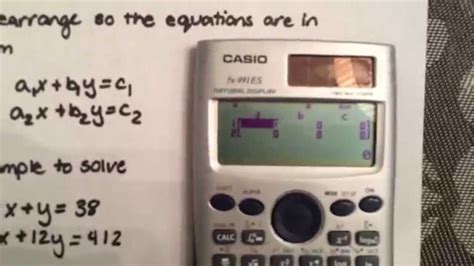 earrange so the equations are in
m
a₁x + b₁y = c₁
a₂x + b₂y = c₂
mple to solve
x + y = 38
x + 12y = 412
CASIO
fx-991ES
NATURAL DISPLAY
a b c
0
SHIFT ALPHA MODE SETUP ON
CALC